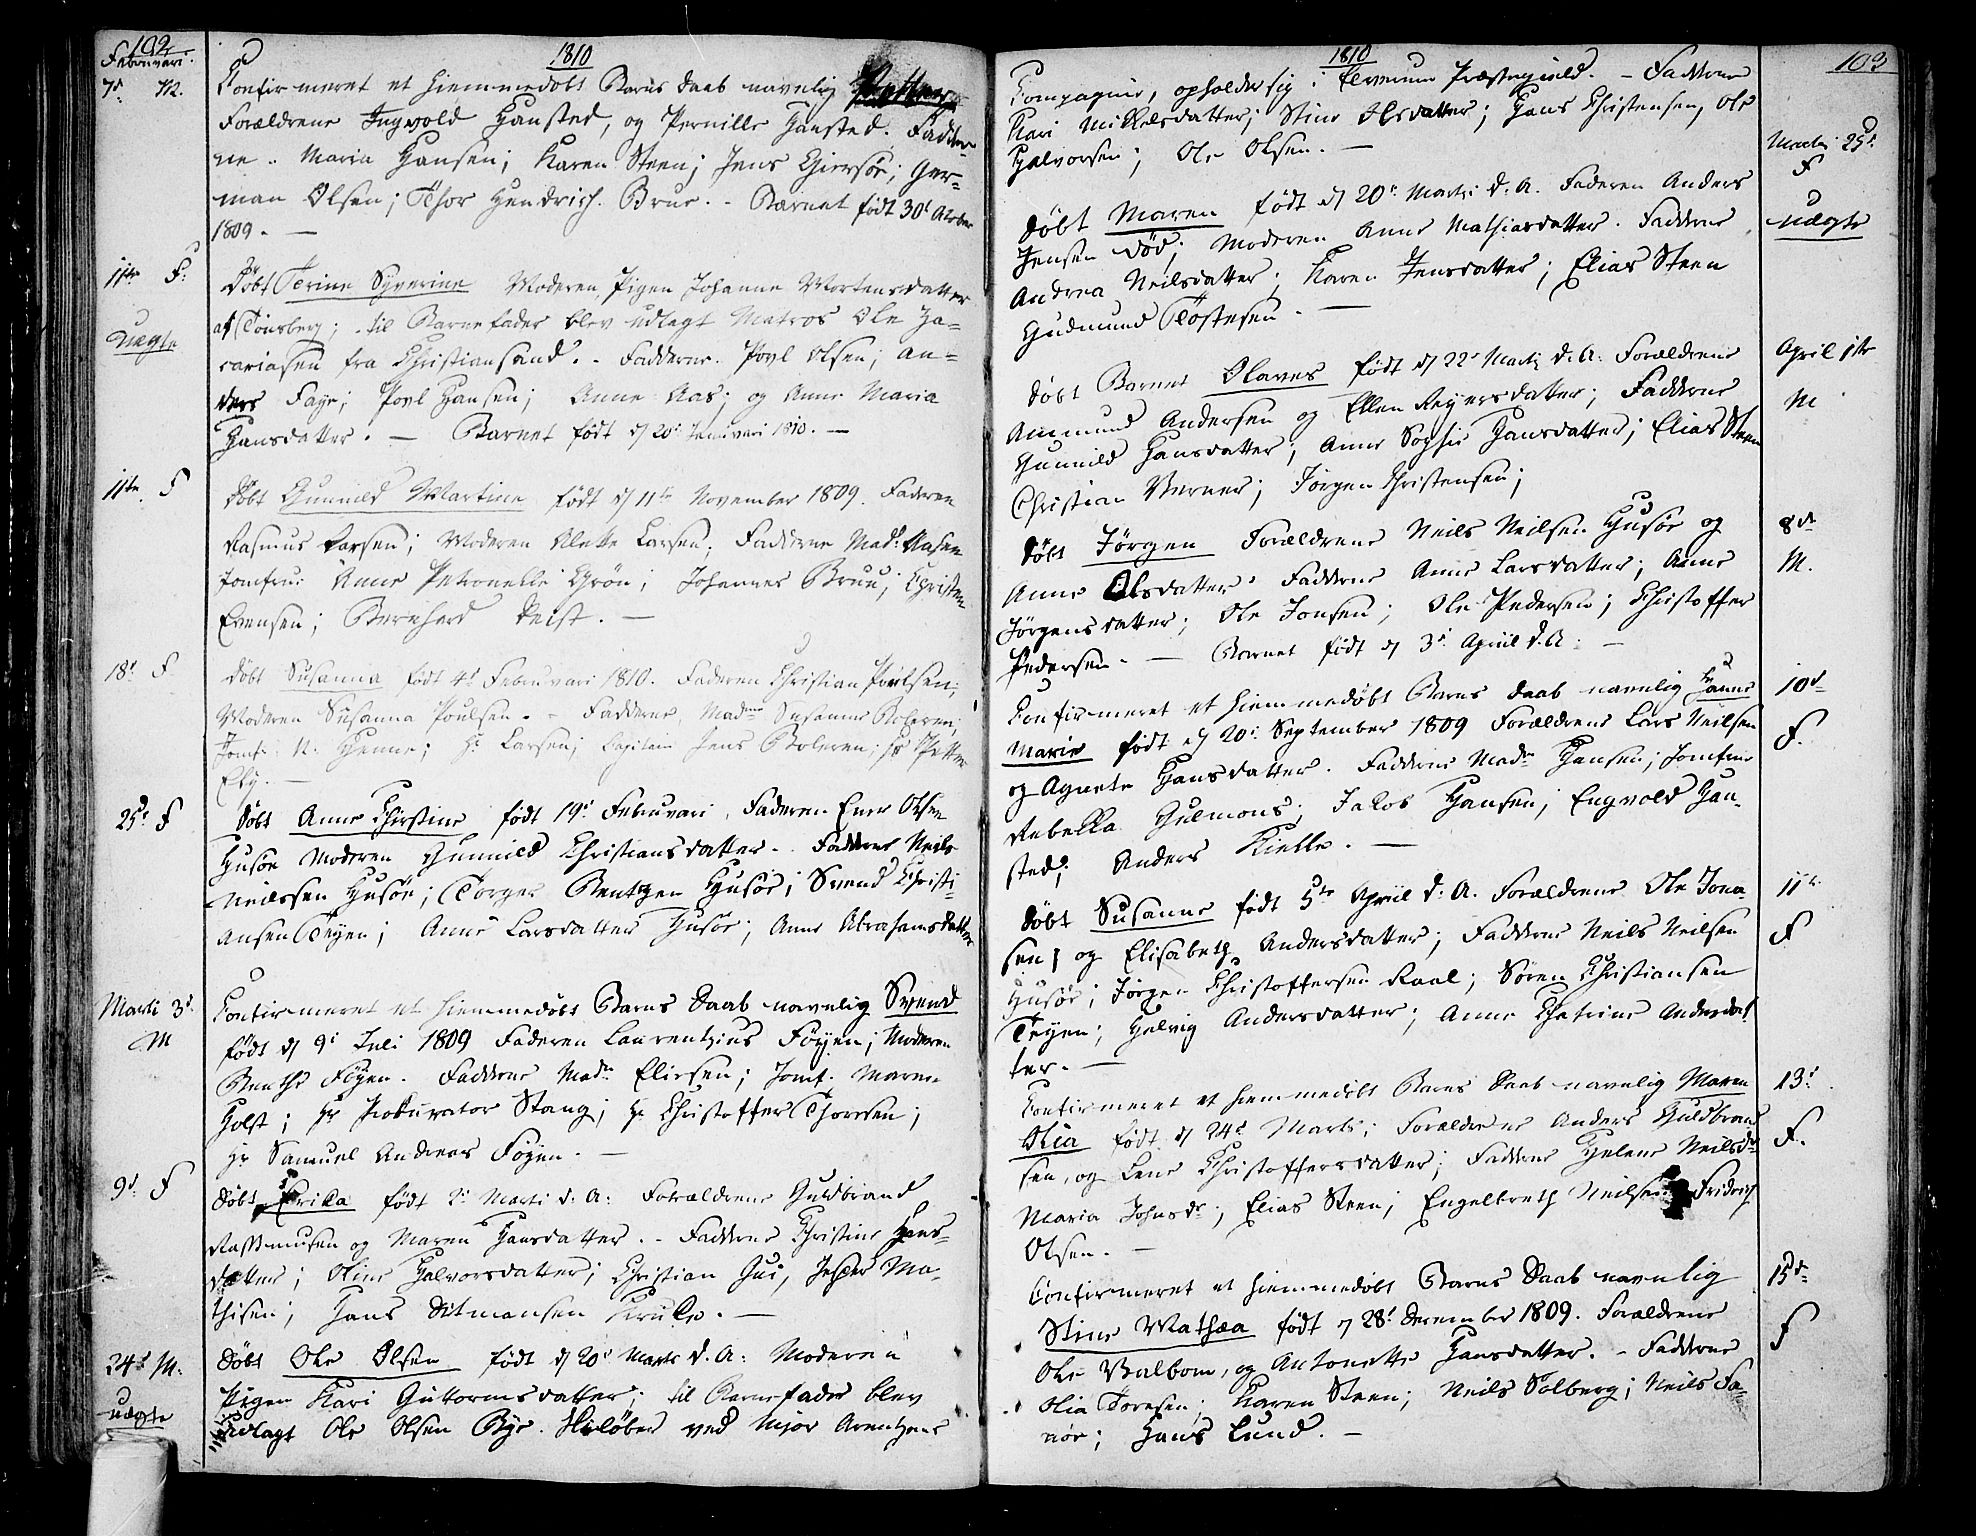 102
1810
Februari.
7d M. Confirmeret et hiemmedøbt Barns Daab navnlig
Forældrene Ingvold Hansted, og Pernille Hansted. Fadder-
ne. Maria Hansen; Karen Steen; Jens Giersøe; Her-
man Olsen; Thor Hendrich. Brue. - Barnet født 30t
1809. —
11te F. Døbt Terine Syverine Moderen, Pigen Johanne Mortensdatter
uægte af Tønsberg; til Barnefader blev udlagt Matros Ole Za-
cariasen fra Christiansand. - Fadderne. Povl Olsen; An-
ders Faye; Povl Hansen; Anne Aas; og Anne Maria
Hansdatter. — Barnet født d 20d Januari 1810. —
11te F Døbt Gunnild Martine født d 11te November 1809. Faderen
Rasmus Larsen; Moderen Alette Larsen. Fadderne Mad: Aasen
Jomfrue Anne Petronelle Grøn; Johannes Bruu; Christen
Evensen; Bernhard Deist. —
18d F Døbt Susanna født 4d Februari 1810. Faderen Christian Poulsen;
Moderen Susanna Poulsen. - Fadderne, Madme Susanne Boleren;
Jomf: N. Henne; Hr Larsen; Capitain Jens Boleren; Hr Petter
Eby. —
25d F Døbt Anne Christine født 19d Februari, Faderen Ener Olsen
Husøe Moderen Gunnild Christiansdatter. Fadderne Neils
Neilssen Husøe; Torger Bentzen Husøe; Svend Christi-
ansen Teyen; Anne Larsdatter Husøe; Anne Abrahamsdatter
Marti 3d Confirmeret et hiemmedøbt Barns Daab navnlig Svend
M født d 9d Juli 1809 Faderen Laurentzius Føyen; Moderen
Benthe Føyen. Fadderne Madm Eliesen; Jomf. Maren
Holst; Hr Prokurator Stang; Hr Christoffer Thoresen;
Hr Samuel Andreas Føyen. —
9d F Døbt Erika født 2d Marti d. A: Forældrene Guldbrand
Rassmusen og Maren Hansdatter. - Fadderne Christine Hans-
datter; Oline Halvorsdatter; Christian Gui, Jesper Ma-
thisen; Hans Ditmansen Krukе. —
24d M. Døbt Ole Olsen født d 20d Marti d. A: Moderen
uægte Pigen Kari Guttormsdatter; til Barnefader blev
udlagt Ole Olsen Bye. Skiløber ved Major Arentzens
1810
103
Compagnie, opholder sig i Elverum Præstegield. - Fadderne
Kari Mikkelsdatter; Stine Olsdatter; Hans Christensen, Ole
Halvorsen; Ole Olsen. —
Martii 25d
F
uægte
Døbt Maren født d 20d Marti d. A. Faderen Anders
Jensen død; Moderen Anne Mathiasdatter. Fadderne
Andrea Neilsdatter; Karen Jensdatter; Elias Steen
Gudmund Tøstesen. —
April 1te
M
Døbt Barnet Olaves født d 22d Marti d. A: Forældrene
Ammund Andersen og Ellen Reyersdatter; Fadderne
Gunnild Hansdatter; Anne Sophie Hansdatter; Elias Steen
Christian Verner; Jørgen Christensen;
8de
M.
Døbt Jørgen Forældrene Neils Neilsen Husøe og
Anne Olsdatter Fadderne Anne Larsdatter; Anne
Jørgensdatter; Ole Jonsen; Ole Pedersen; Christoffer
Pedersen. — Barnet født d 3d April d. A: —
10de
F.
Confirmeret et hiemmedøbt Barns Daab navnlig Hanne
Marie født d 20d September 1809 Forældrene Lars Neilsen
og Agnete Hansdatter. Fadderne Madm Hansen; Jomfrue
Rebekka Gulmons; Jakob Hansen; Engvold Han-
sted; Anders Kielle. —
11te
F
Døbt Susanne født 5te April d. A. Forældrene Ole Jona-
sen; og Elisabeth Andersdatter; Fadderne Neils Neilsen
Husøe; Jørgen Christoffersen Raal; Søren Christiansen
Teyen; Helvig Andersdatter; Anne Chatrine Andersdat
ter. —
13d
F.
Confirmeret et hiemmedøbt Barns Daab navnlig Maren
Olia født d 24d Marti; Forældrene Anders Guldbrand
sen, og Lene Christoffersdatter; Fadderne Helene Neilsdr
Maria Johnsdr; Elias Steen; Engelbreth Neilsen Fridrich
Olsen. —
15de
F
Confirmeret et hiemmedøbt Barns Daab navnlig
Stine Mathæa født d 28d December 1809. Forældrene
Ole Balbom, og Antonette Hansdatter. - Fadderne
Olia Toresen; Karen Steen; Neils Solberg; Neils Fa-
nøe; Hans Lund. —